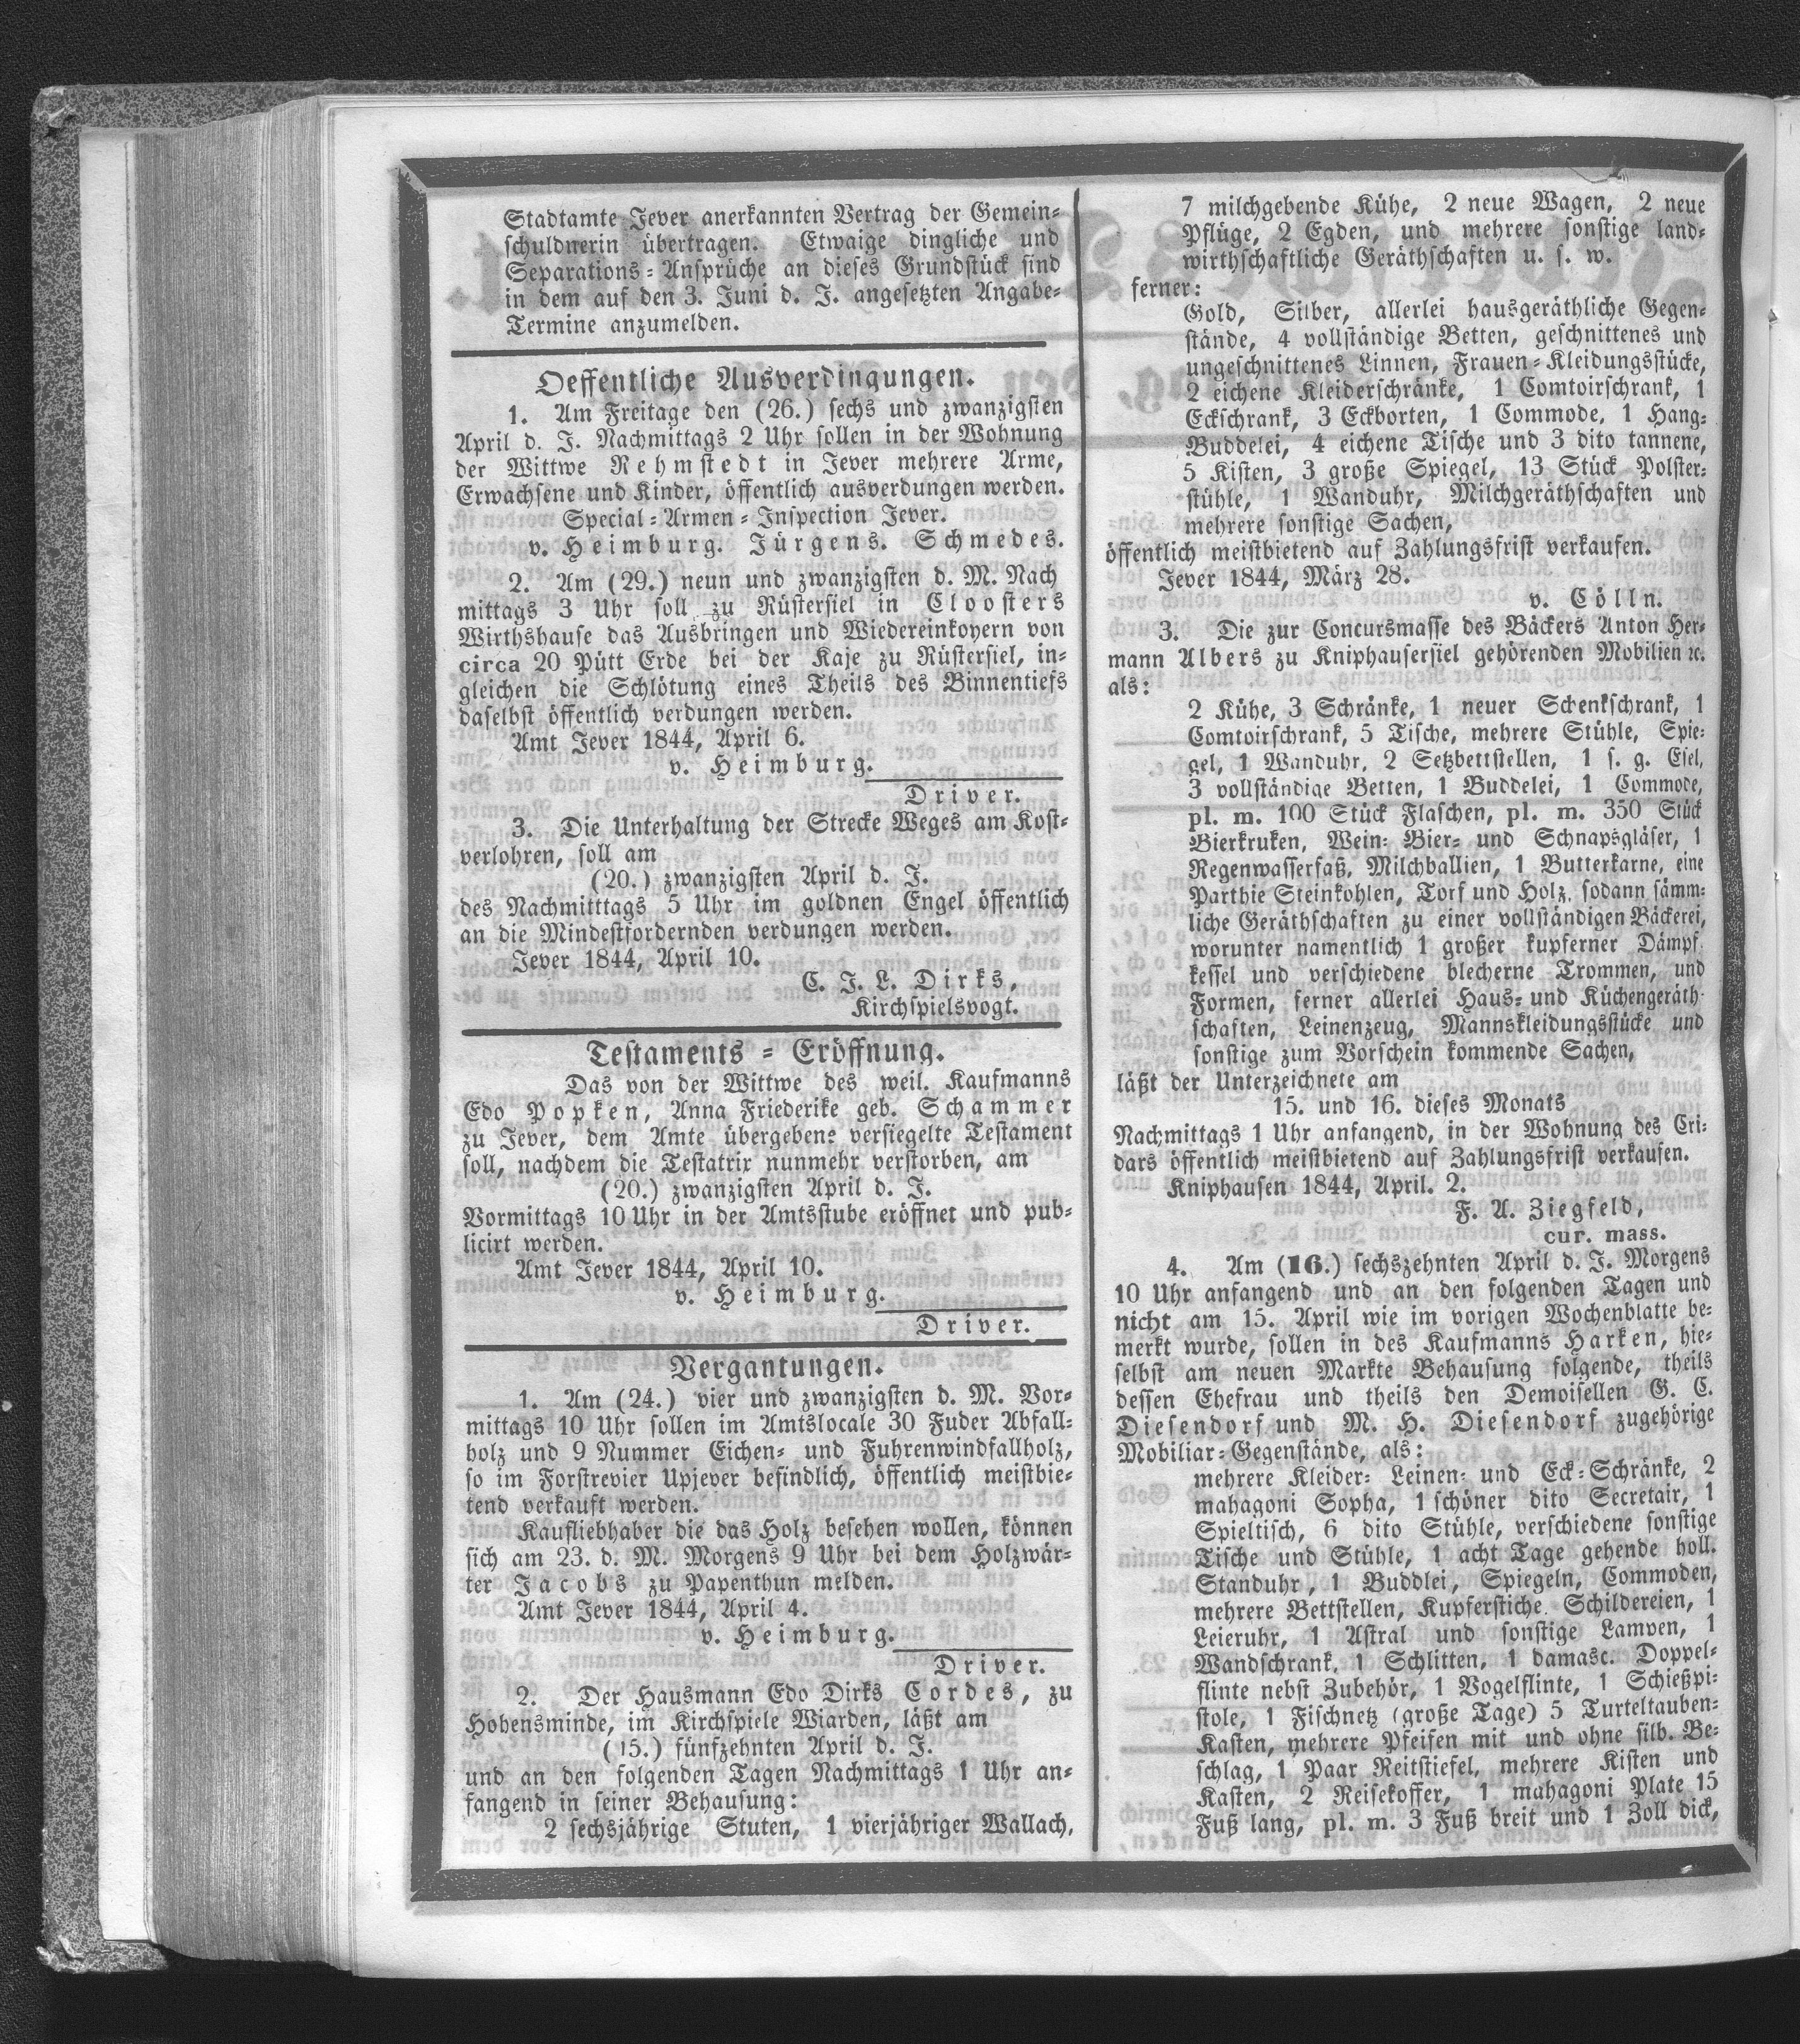 Stadtamte Jever anerkannten Vertrag der Gemein-
schuldnerin übertragen. Etwaige dingliche und
Separations-Ansprüche an dieses Grundstück sind
in dem auf den 3. Juni d. J. angesetzten Angabe-
Termine anzumelden.
Oeffentliche Ausverdingungen.
1. Am Freitage den (26.) sechs und zwanzigsten
April d. J. Nachmittags 2 Uhr sollen in der Wohnung
der Wittwe Rehmstedt in Jever mehrere Arme,
Erwachsene und Kinder, öffentlich ausverdungen werden.
Special-Armen-Inspection Jever.
v. Heimburg. Jürgens. Schmedes.
2. Am (29.) neun und zwanzigsten d. M. Nach
mittags 3 Uhr soll zu Rüstersiel in Cloosters
Wirthshause das Ausbringen und Wiedereinkoyern von
circa 20 Pütt Erde bei der Kaje zu Rüstersiel, in-
gleichen die Schlötung eines Theils des Binnentiefs
daselbst öffentlich verdungen werden.
Amt Jever 1844, April 6.
v. Heimburg.
Driver.
3. Die Unterhaltung der Strecke Weges am Kost-
verlohren, soll am
(20.) zwanzigsten April d. J.
des Nachmitttags 5 Uhr im goldnen Engel öffentlich
an die Mindestfordernden verdungen werden.
Jever 1844, April 10.
C. J. L. Dirks,
Kirchspielsvogt.
Testaments-Eröffnung.
Das von der Wittwe des weil. Kaufmanns
Edo Popken, Anna Friederike geb. Schammer
zu Jever, dem Amte übergebene versiegelte Testament
soll, nachdem die Testatrix nunmehr verstorben, am
(20.) zwanzigsten April d. J.
Vormittags 10 Uhr in der Amtsstube eröffnet und pub-
licirt werden.
Amt Jever 1844, April 10.
v. Heimburg.
Driver.
Vergantungen.
1. Am (24.) vier und zwanzigsten d. M. Vor-
mittags 10 Uhr sollen im Amtslocale 30 Fuder Abfall-
holz und 9 Nummer Eichen- und Fuhrenwindfallholz,
so im Forstrevier Upjever befindlich, öffentlich meistbie-
tend verkauft werden.
Kaufliebhaber die das Holz besehen wollen, können
sich am 23. d. M. Morgens 9 Uhr bei dem Holzwär-
ter Jacobs zu Papenthun melden.
Amt Jever 1844, April 4.
v. Heimburg.
Driver.
2. Der Hausmann Edo Dirks Cordes, zu
Hohensminde, im Kirchspiele Wiarden, läßt am
(15.) fünfzehnten April d. J.
und an den folgenden Tagen Nachmittags 1 Uhr an-
fangend in seiner Behausung:
2 sechsjährige Stuten, 1 vierjähriger Wallach,
7 milchgebende Kühe, 2 neue Wagen, 2 neue
Pflüge, 2 Egden, und mehrere sonstige land-
wirthschaftliche Geräthschaften u. s. w.
ferner:
Gold, Silber, allerlei hausgeräthliche Gegen-
stände, 4 vollständige Betten, geschnittenes und
ungeschnittenes Linnen, Frauen-Kleidungsstücke,
2 eichene Kleiderschränke, 1 Comtoirschrank, 1
Eckschrank, 3 Eckborten, 1 Commode, 1 Hang-
Buddelei, 4 eichene Tische und 3 dito tannene,
5 Kisten, 3 große Spiegel, 13 Stück Polster-
stühle, 1 Wanduhr, Milchgeräthschaften und
mehrere sonstige Sachen,
öffentlich meistbietend auf Zahlungsfrist verkaufen.
Jever 1844, März 28.
v. Cölln.
3. Die zur Concursmasse des Bäckers Anton Her-
mann Albers zu Kniphausersiel gehörenden Mobilien ꝛc.
als:
2 Kühe, 3 Schränke, 1 neuer Schenkschrank, 1
Comtoirschrank, 5 Tische, mehrere Stühle, Spie-
gel, 1 Wanduhr, 2 Setzbettstellen, 1 s. g. Esel,
3 vollständige Betten, 1 Buddelei, 1 Commode,
pl. m. 100 Stück Flaschen, pl. m. 350 Stück
Bierkruken, Wein- Bier- und Schnapsgläser, 1
Regenwasserfaß, Milchballien, 1 Butterkarne, eine
Parthie Steinkohlen, Torf und Holz, sodann sämm-
liche Geräthschaften zu einer vollständigen Bäckerei,
worunter namentlich 1 großer kupferner Dämpf-
kessel und verschiedene blecherne Trommen, und
Formen, ferner allerlei Haus- und Küchengeräth-
schaften, Leinenzeug, Mannskleidungsstücke und
sonstige zum Vorschein kommende Sachen,
läßt der Unterzeichnete am
15. und 16. dieses Monats
Nachmittags 1 Uhr anfangend, in der Wohnung des Cri-
dars öffentlich meistbietend auf Zahlungsfrist verkaufen.
Kniphausen 1844, April. 2.
F. A. Ziegfeld,
cur. mass.
4. Am (16.) sechszehnten April d. J. Morgens
10 Uhr anfangend und an den folgenden Tagen und
nicht am 15. April wie im vorigen Wochenblatte be-
merkt wurde, sollen in des Kaufmanns Harken, hie-
selbst am neuen Markte Behausung folgende, theils
dessen Ehefrau und theils den Demoisellen G. C.
Diesendorf und M. H. Diesendorf zugehörige
Mobiliar-Gegenstände, als:
mehrere Kleider- Leinen- und Eck-Schränke, 2
mahagoni Sopha, 1 schöner dito Secretair, 1
Spieltisch, 6 dito Stühle, verschiedene sonstige
Tische und Stühle, 1 acht Tage gehende holl.
Standuhr, 1 Buddlei, Spiegeln, Commoden,
mehrere Bettstellen, Kupferstiche, Schildereien, 1
Leieruhr, 1 Astral und sonstige Lampen, 1
Wandschrank, 1 Schlitten, 1 damasc. Doppel-
flinte nebst Zubehör, 1 Vogelflinte, 1 Schießpi-
stole, 1 Fischnetz (große Tage) 5 Turteltauben-
Kasten, mehrere Pfeifen mit und ohne silb. Be-
schlag, 1 Paar Reitstiefel, mehrere Kisten und
Kasten, 2 Reisekoffer, 1 mahagoni Plate 15
Fuß lang, pl. m. 3 Fuß breit und 1 Zoll dick,